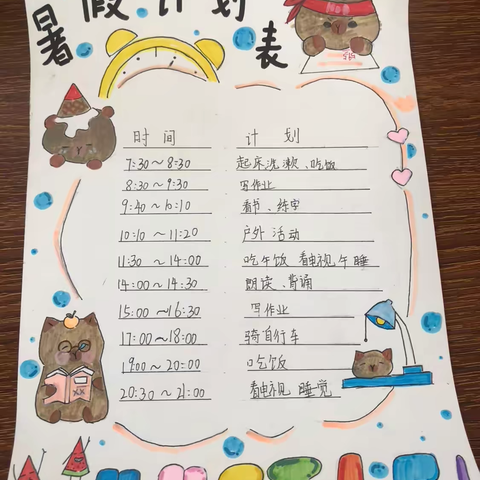 暑假计划表
时间 计划
7:30~8:30 起床洗漱、吃饭
8:30~9:30 写作业
9:40~10:10 看书、练字
10:10~11:20 户外活动
11:30~14:00 吃午饭 看电视 午睡
14:00~14:30 朗读、背诵
15:00~16:30 写作业
17:00~18:00 骑自行车
19:00~20:00 吃饭
20:30~21:00 看电视 睡觉